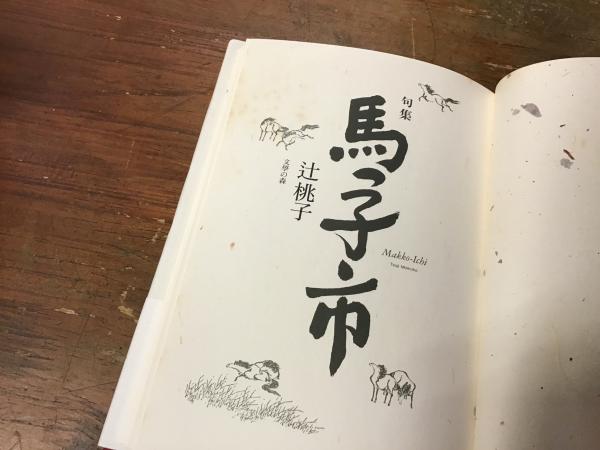 句集
馬つ子市
Makko-Ichi
Tsuji Momoko
辻桃子
文學の森